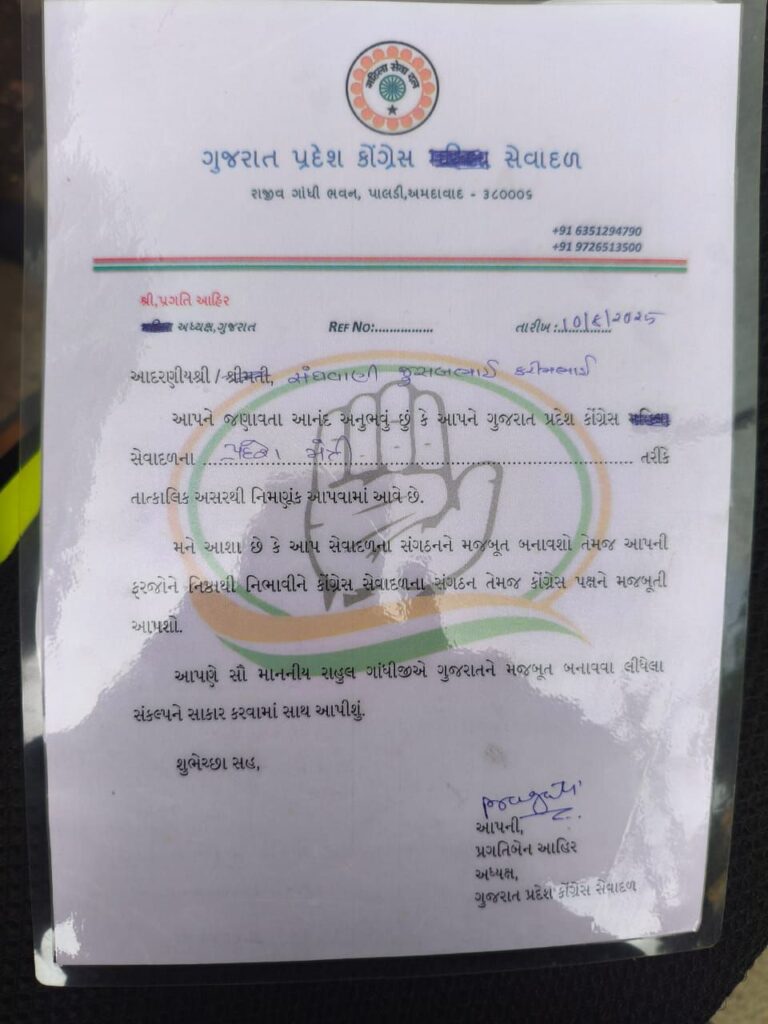 મહિલા સેવા દલ
ગુજરાત પ્રદેશ કોંગ્રેસ સેવાદળ
રાજીવ ગાંધી ભવન, પાલડી,અમદાવાદ - ૩૮૦૦૦૬
+91 6351294790
+91 9726513500
શ્રી,પ્રગતિ આહિર
અધ્યક્ષ,ગુજરાત REF NO:............... તારીખ:
આદરણીયશ્રી / શ્રીમતી, સંઘવાણી જુસબભાઈ કરીમભાઈ
આપને જણાવતા આનંદ અનુભવું છું કે આપને ગુજરાત પ્રદેશ કોંગ્રેસ
સેવાદળના પ્રદેશ મંત્રી તરીકે
તાત્કાલિક અસરથી નિમાણુંક આપવામાં આવે છે.
મને આશા છે કે આપ સેવાદળના સંગઠનને મજબૂત બનાવશો તેમજ આપની
ફરજોને નિષ્ઠાથી નિભાવીને કોંગ્રેસ સેવાદળના સંગઠન તેમજ કોંગ્રેસ પક્ષને મજબૂતી
આપશો.
આપણે સૌ માનનીય રાહુલ ગાંધીજીએ ગુજરાતને મજબૂત બનાવવા લીધેલા
સંકલ્પને સાકાર કરવામાં સાથ આપીશું.
શુભેચ્છા સહ,
Pragati
આપની,
પ્રગતિબેન આહિર
અધ્યક્ષ,
ગુજરાત પ્રદેશ કોંગ્રેસ સેવાદળ